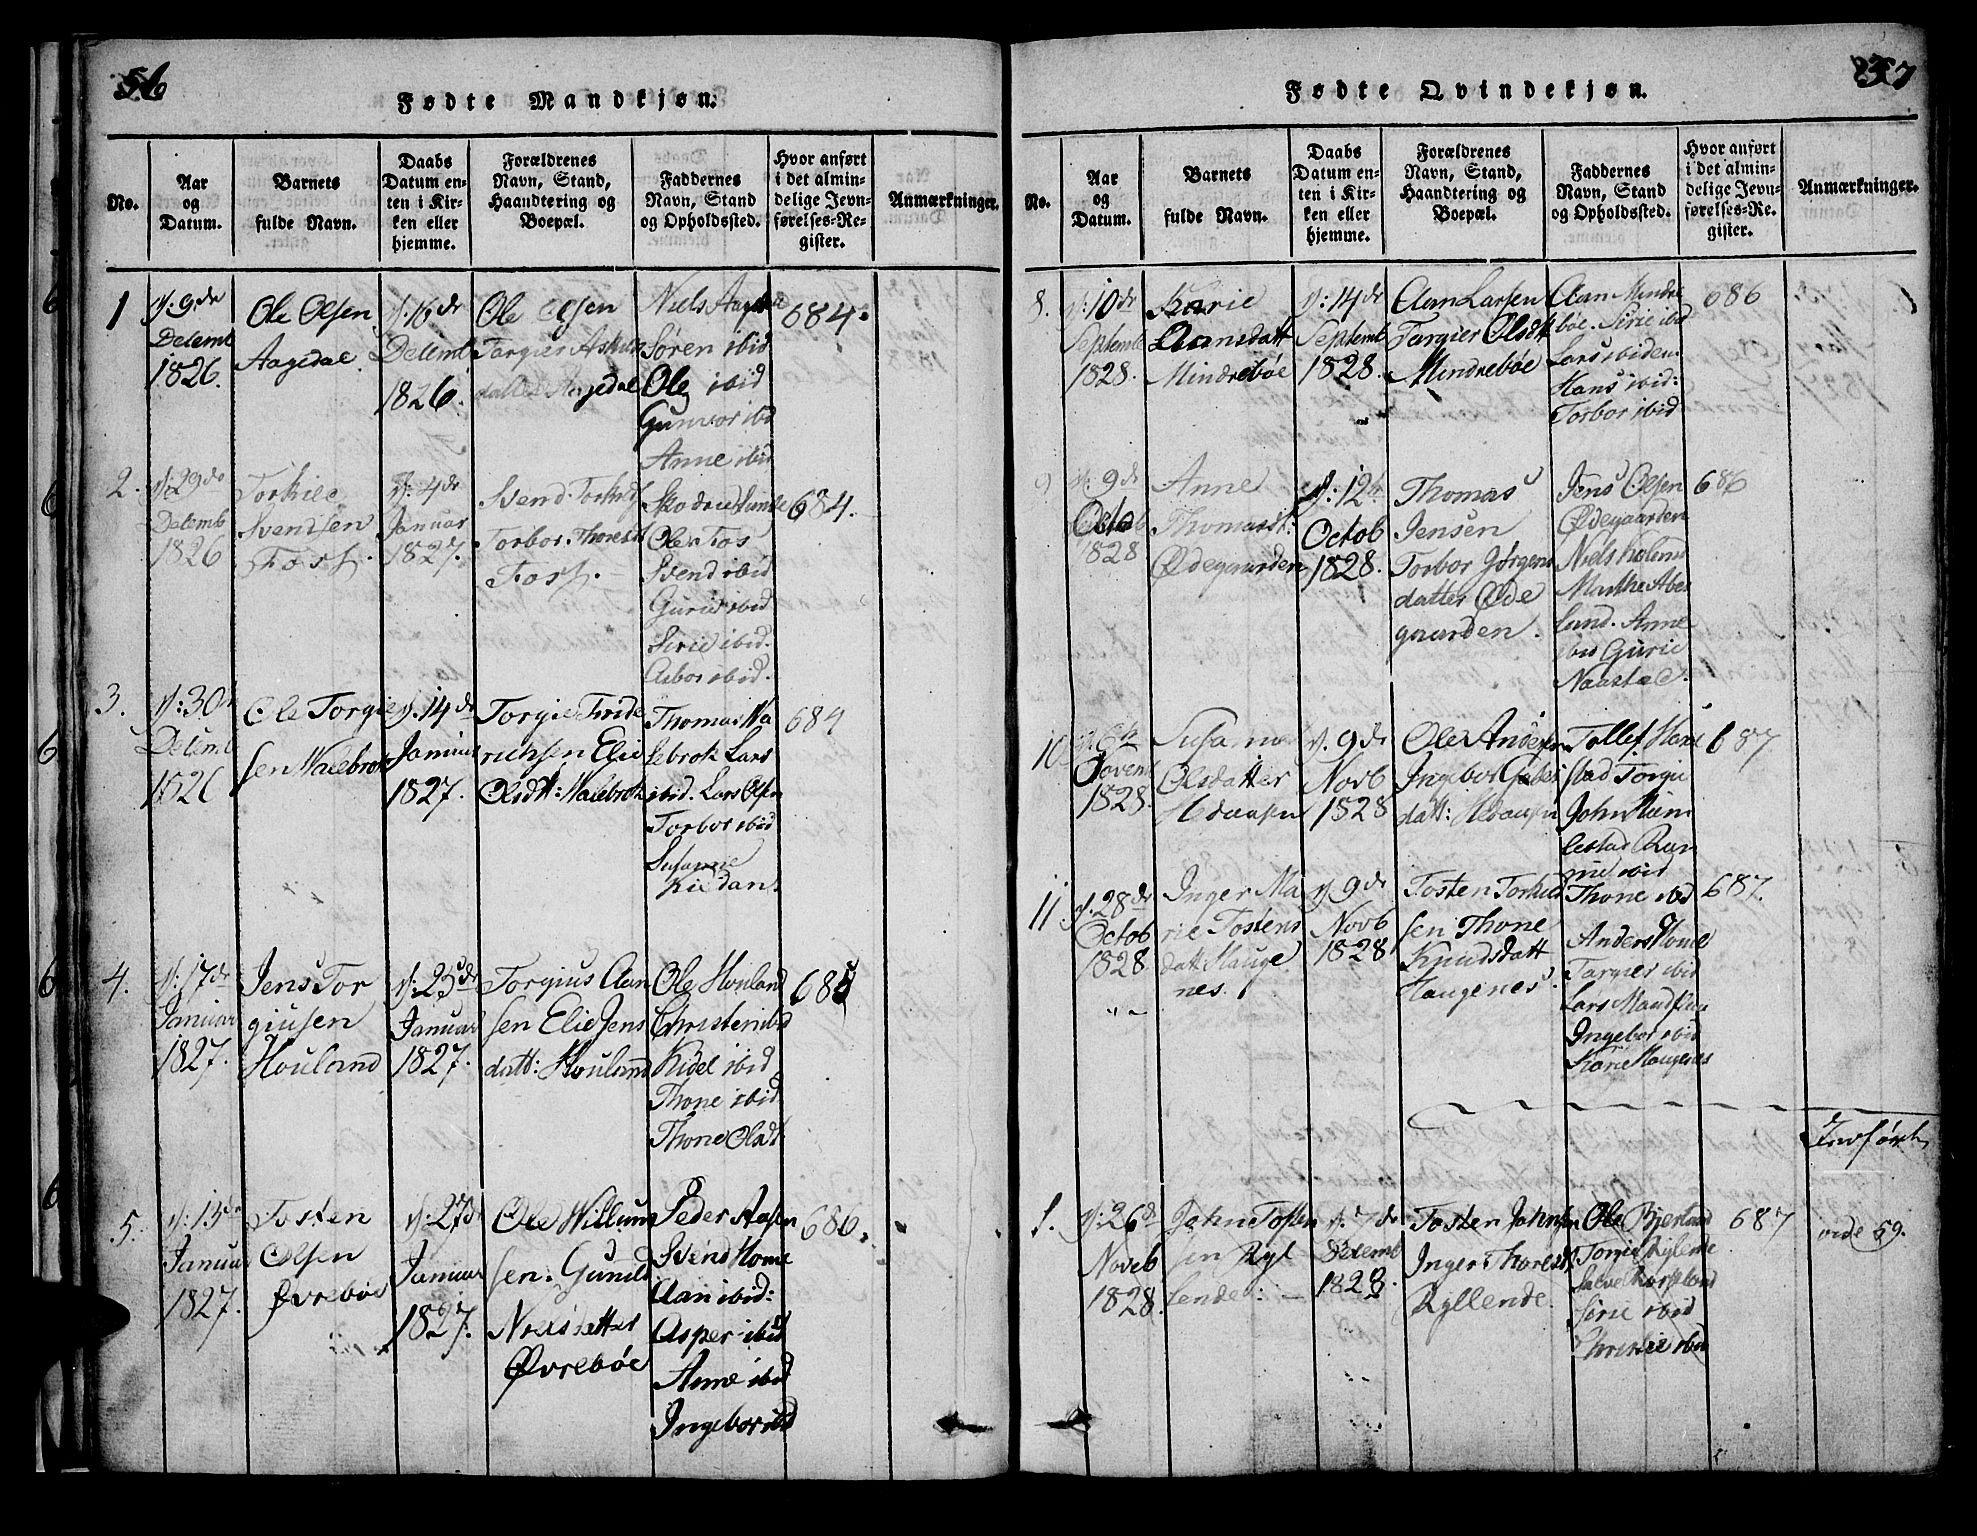 56
Fødte Mandkjøn.
No.
Aar
og
Datum.
Barnets
fulde Navn.
Daabs
Datum en-
ten i Kir-
ken eller
hjemme.
Forældrenes
Navn, Stand,
Haandtering og
Boepæl.
Faddernes
Navn, Stand
og Opholdssted.
Hvor anført
i det almin-
delige Jevn-
førelses-Re-
gister.
Anmærkninger.
1
d: 9de
Decemb
1826.
Ole Olsen
Aagedal
d: 16de
Decemb
1826.
Ole Olsen
Targier
Aagedal
Niels
Søren ibid
Ole ibid
Gunvor ibd
Anne ibid
684.
2.
d: 29de
Decemb
1826
Torkild
Svendsen
Foss.
d: 4de
Januar
1827.
Svend
Torbor
Foss.
Ole Fos
Svend ibid
Gurie ibid
Sirie ibid.
Asbor ibid.
684.
3.
d: 30
Decemb
1826
Ole Torgie
sen Walebrok
d. 14de
Januar
1827.
Torgie Fride
richsen Elie
Olsdtt: Walebrok
Thomas Wa
lebrok Lars
ibid. Lars Olsen
Torbor ibid
Susanne
684
4.
d: 17de
Januar
1827.
Jens Tor
giusen
Houland
d: 25de
Januar
1827.
Torgius Aan
sen Elie Jens
datt: Houland
Ole Houland
Christen ibd
Kidel ibid
Thone ibid
Thone Olsdt
685
5.
d: 13de
Januar
1827.
Tosten
Olsen
Øvrebøe
d: 27de
Januar
1827.
Ole Willum
sen. Gunild
Nielsdatter
Øvrebøe
Peder Aasen
Svend Home
Aan ibid:
Asper ibid
Anne ibid
Ingebor ibd
686.
57
Fødte Qvindekjøn.
No.
Aar
og
Datum.
Barnets
fulde Navn.
Daabs
Datum en-
ten i Kir-
ken eller
hjemme.
Forældrenes
Navn, Stand,
Haandtering og
Boepæl.
Faddernes
Navn, Stand
og Opholdssted.
Hvor anført
i det almin-
delige Jevn-
førelses-Re-
gister.
Anmærkninger.
8.
d: 10de
Septemb
1828.
Karie
Aansdatt
Mindrebøe
d: 14de
Septemb
1828.
Aan Larsen
Targier Olsdt
Mindrebøe
Aan Mindre
bøe. Sirie ibid
Lars ibidem
Hans ibid:
Torbor ibid
686
9
d: 9de
Octob
1828
Anne
Thomasdt:
Ødegaarden
d: 12te
Octob
1828.
Thomas
Jensen
Torbor Jørgens
datter Øde
gaarden.
Jens Olsen
Ødegaarden
Niels
Marthe
land. Anne
ibid Gurie
Naastad.
686
10
Novemb
1828.
Susanne
Olsdatter
Hdaasen
d. 9de
Novb
1828
Ole Andersen
Ingebor
datt: Hdaasen
Tollef
stad Torgu
John
lestad
ibid
687
11
d. 28de
Octob
1828
Inger Ma
rie Tostens
datt Hauge
nes.
d 9de
Novb
1828
Tosten Torkild
sen Thone
Knudsdatt
Haugenes.
Thone ibid
Anders Home
Targier ibid
Lars
Ingebor ibid
Karie Haugenes
687.
Indført
1.
d: 26de
Novb
1828.
John Tosten
sen Ryl
lende: –
d: 7de
Decemb
1828.
Tosten Johnsen
Inger Thoresdt
Ryllende.
Ole Bjerland
Torgie Rylende
Salve
Sirie ibid
Christie ibid
687
vide 59.